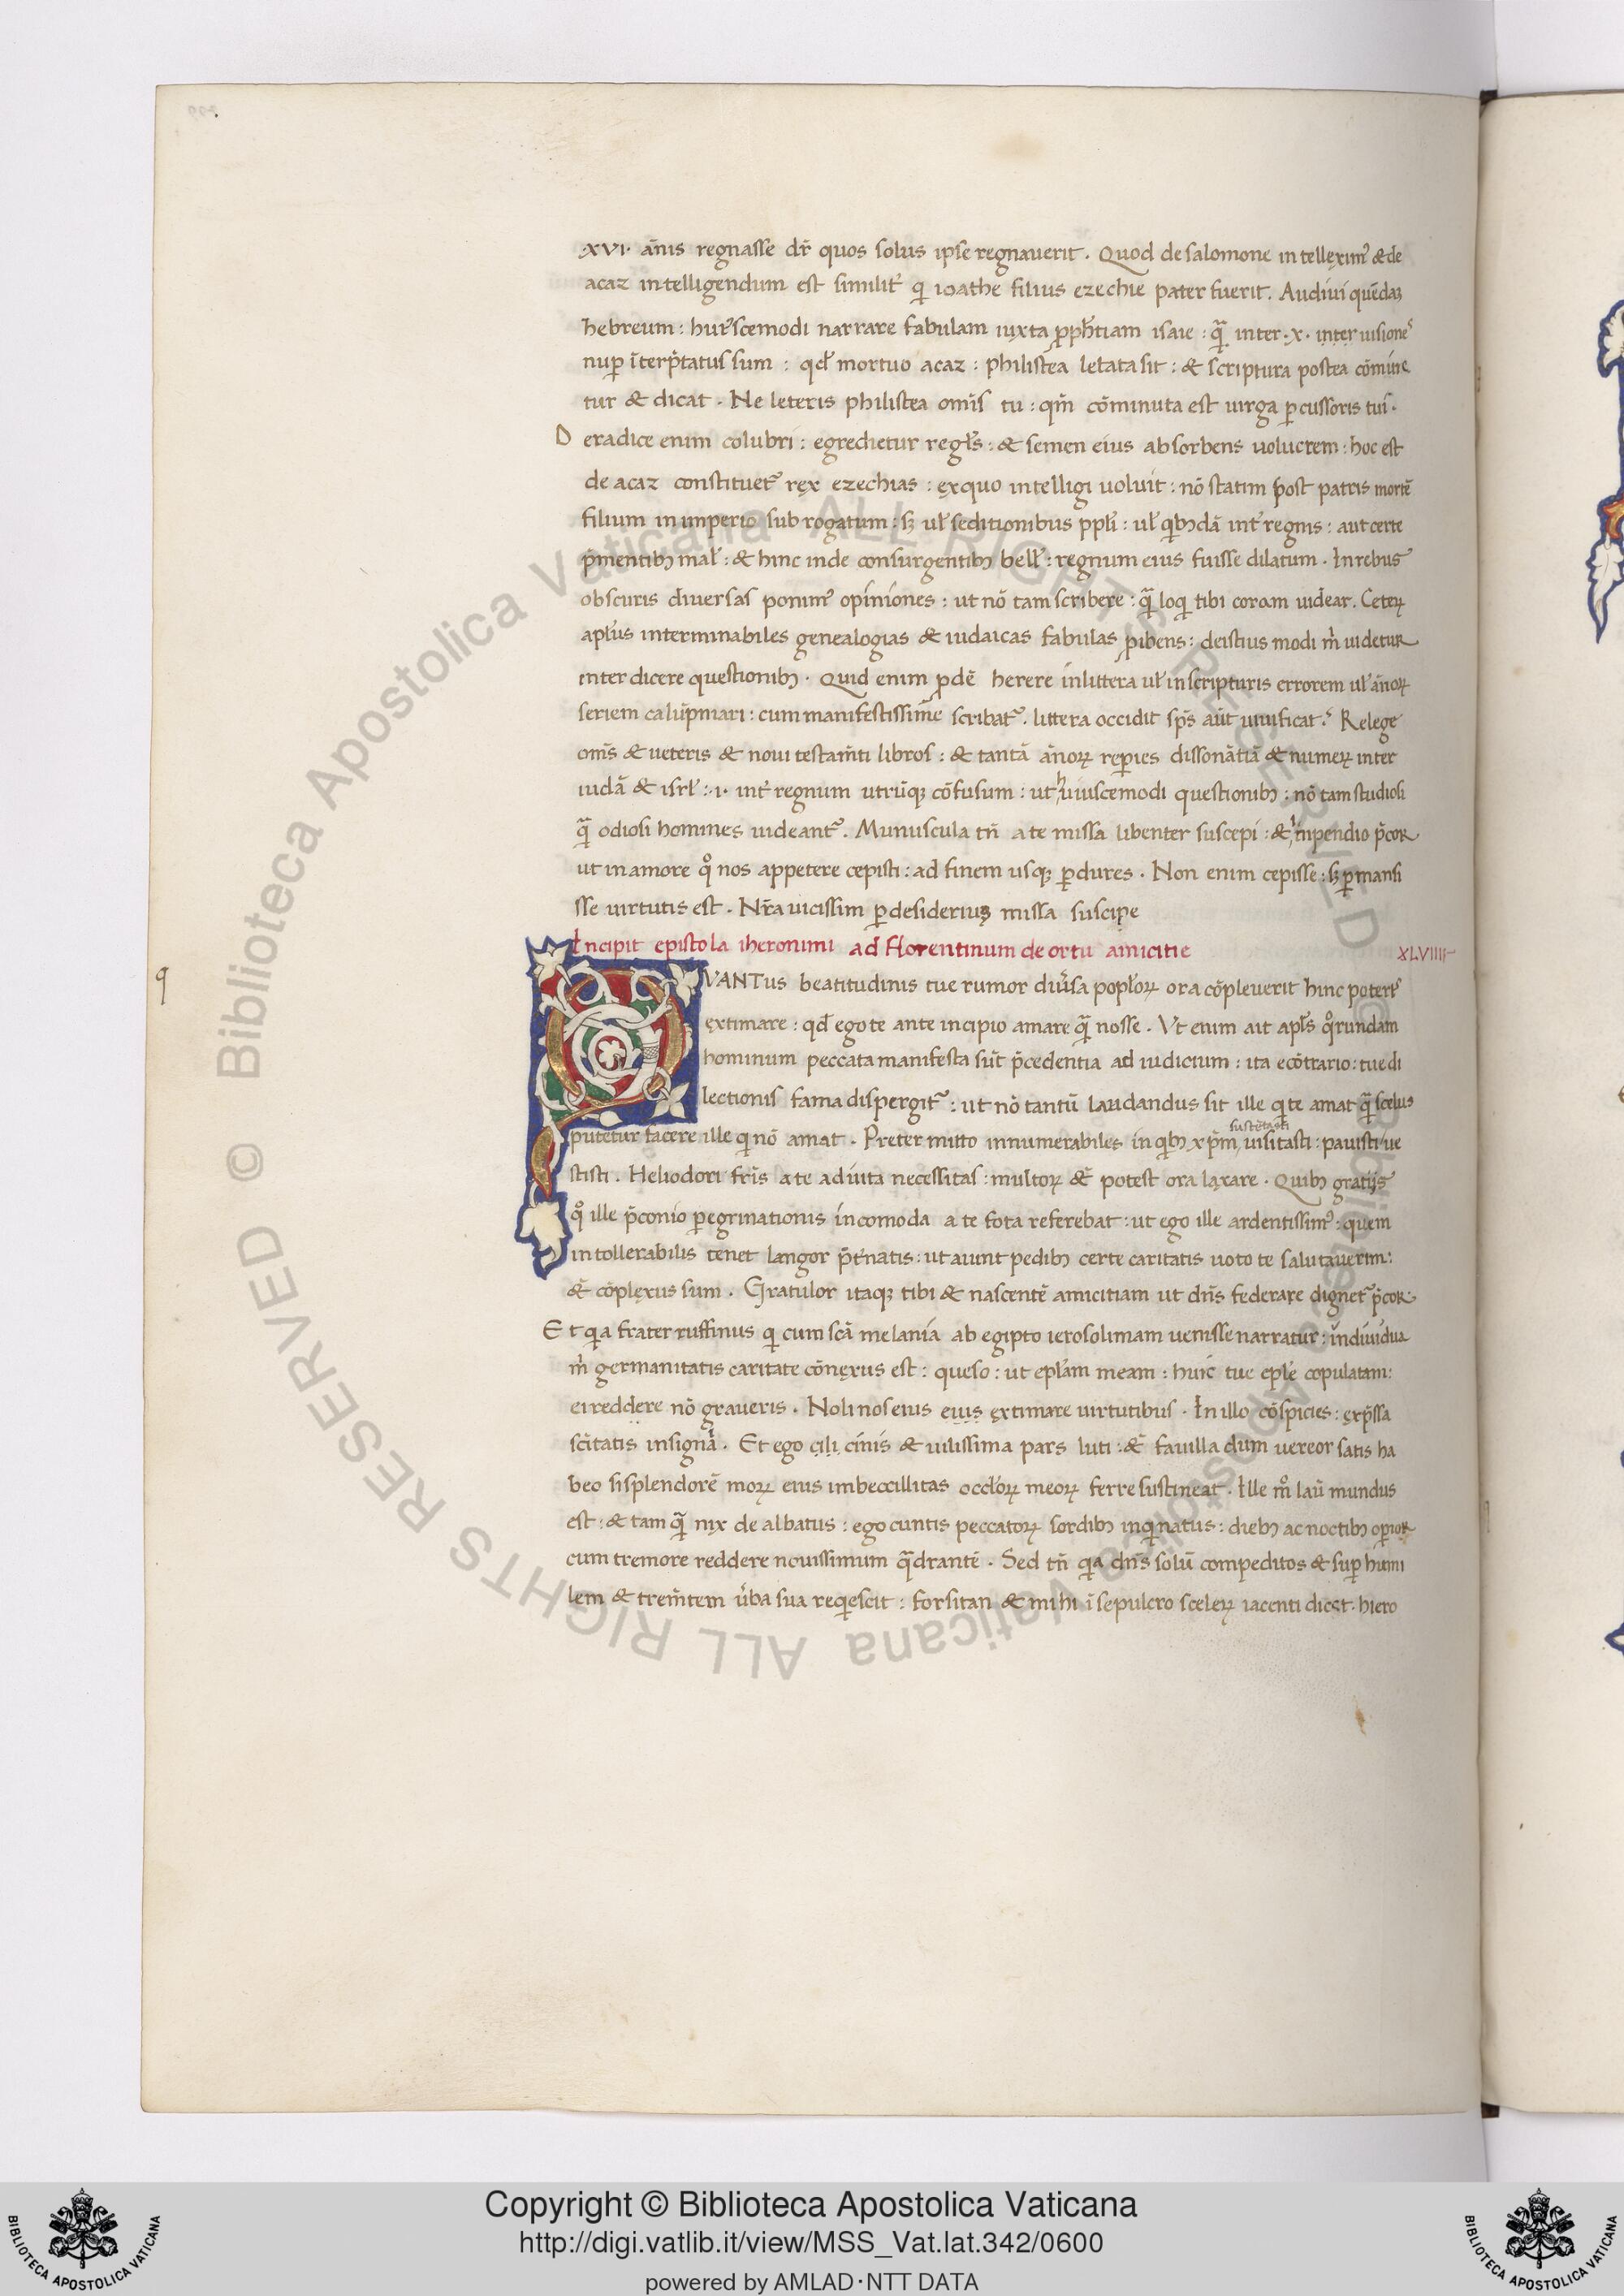 .XVI. an̄is regnasse dr̄ quos solus ipse regnauerit. Quod de salomone intellexim᾽ & de
acaz intelligendum est similit̄ qi ioathe filius ezechie pater fuerit. Audiui quēdaꝫ
hebreum: huiᵘscemodi narrare fabulam iuxta ꝓph̄tiam isaie: qᷓ inter .x. inter uisiones
nuꝑ īterp̄tatus sum: qd̄ mortuo acaz: philistea letata sit: & scriptura postea cōmine
tur & dicat. Ne leteris philistea om̄s tu: qm̄ cōminuta est uirga ꝑcussoris tui.
D eradice enim colubri: egredietur regl̄s: & semen eius absorbens uolucrem: hoc est
de acaz constituet᾽ rex ezechias: exquo intelligi uoluit: nō statim post patris mortē
filium in imperio subrogatum: sꝫ ul̄ seditionibus ppl̄i: ul̄ qibꝫdā int̄ regnis: aut certe
p̄mentibꝫ mal̄: & hinc inde consurgentibꝫ bell̄: regnum eius fuisse dilatum. In rebus
obscuris diuersas ponim᾽ opiniones: ut nō tam scribere: qᷓ loqi tibi coram uidear. Ceteꝝ
apl̄us interminabiles genealogias & iudaicas fabulas ꝓibens: deistius modi m̄ uidetur
inter dicere questionibꝫ. Quid enim ꝓdē herere in littera ul̄ in scripturis errorem ul̄ ān̄oꝝ
seriem calūpmari: cum manifestissime scribat᾽. littera occidit sp̄s aūt uiuificat. Relege
om̄s & ueteris & noui testam̄ti libros: & tantā ānoꝝ reꝑies dissonātiā & numeꝝ inter
iudā & isrl̄: .i. int̄ regnum utrūqꝫ cōfusum: ut huiuscemodi questionibꝫ: nō tam studiosi
qᷓ odiosi homines uideant᾽. Munuscula tn̄ a te missa libenter suscepi: & impendio p̄cor
ut in amore qͦ nos appetere cepisti: ad finem usqꝫ ꝑdures. Non enim cepisse: sꝫ ꝑmansi
sse uirtutis est. Nr̄a uicissim ꝑ desideriuꝫ missa suscipe
Incipit epistola iheronimi ad florentinum de ortu amicitie XLVIIII
QVANTus beatitudinis tue rumor diūsa popl̄oꝝ ora cōpleuerit hinc poteris
q
extimare: qd̄ ego te ante incipio amare qᷓ nosse. Vt enim ait apl̄s qͦrundam
hominum peccata manifesta sūt p̄cedentia ad iudicium: ita ecōtrario: tue di
lectionis fama dispergit᾽: ut nō tantū laudandus sit ille qi te amat qᷓ scelus
putetur facere ille qi nō amat. Preter mitto innumerabiles in qibꝫ xp̄m sustētasti uisitasti: pauisti: ue
stisti. Heliodori fr̄is a te adiuta necessitas: multoꝝ & potest ora laxare. Quibꝫ gratijs
qͦ ille p̄conio ꝑegrinationis incomoda a te fota referebat: ut ego ille ardentissim᾽: quem
intollerabilis tenet langor p̄t̄natis: ut aiunt pedibꝫ certe caritatis uoto te salutauerim:
& cōplexus sum. Gratulor itaqꝫ tibi & nascentē amicitiam ut dn̄s federare dignet᾽ p̄cor
Et qia frater ruffinus qi cum sc̄a melania ab egipto ierosolimam uenisse narratur: indiuidua
m̄ germanitatis caritate cōnexus est: queso: ut epl̄am meam: huic tue epl̄e copulatam:
ei reddere nō graueris. Noli nos eius eius extimare uirtutibus. In illo cōspicies: exp̄ssa
sc̄itatis insignia. Et ego cili cinis & uilissima pars luti: & fauilla dum uereor satis ha
beo si splendorē moꝝ eius imbeccillitas occl̄oꝝ meoꝝ ferre sustineat. Ille mͦ lau̅ mundus
est: & tamqᷓ nix de albatus: ego cuntis peccatoꝝ sordibꝫ inqinatus: diebꝫ ac noctibꝫ oꝑior
cum tremore reddere nouissimum qᷓdrantē. Sed tn̄ qia dn̄s solū compeditos & suꝑ humi
lem & trem̄tem ūba sua reqiescit: forsitan & mihi ī sepulcro sceleꝝ iacenti dicet. hiero
© Biblioteca Apostolica Vaticana ALL RIGHTS RESERVED
© Biblioteca Apostolica Vaticana ALL RIGHTS RESERVED
Copyright © Biblioteca Apostolica Vaticana
http://digi.vatlib.it/view/MSS_Vat.lat.342/0600
powered by AMLAD·NTT DATA
BIBLIOTECA APOSTOLICA VATICANA
BIBLIOTECA APOSTOLICA VATICANA